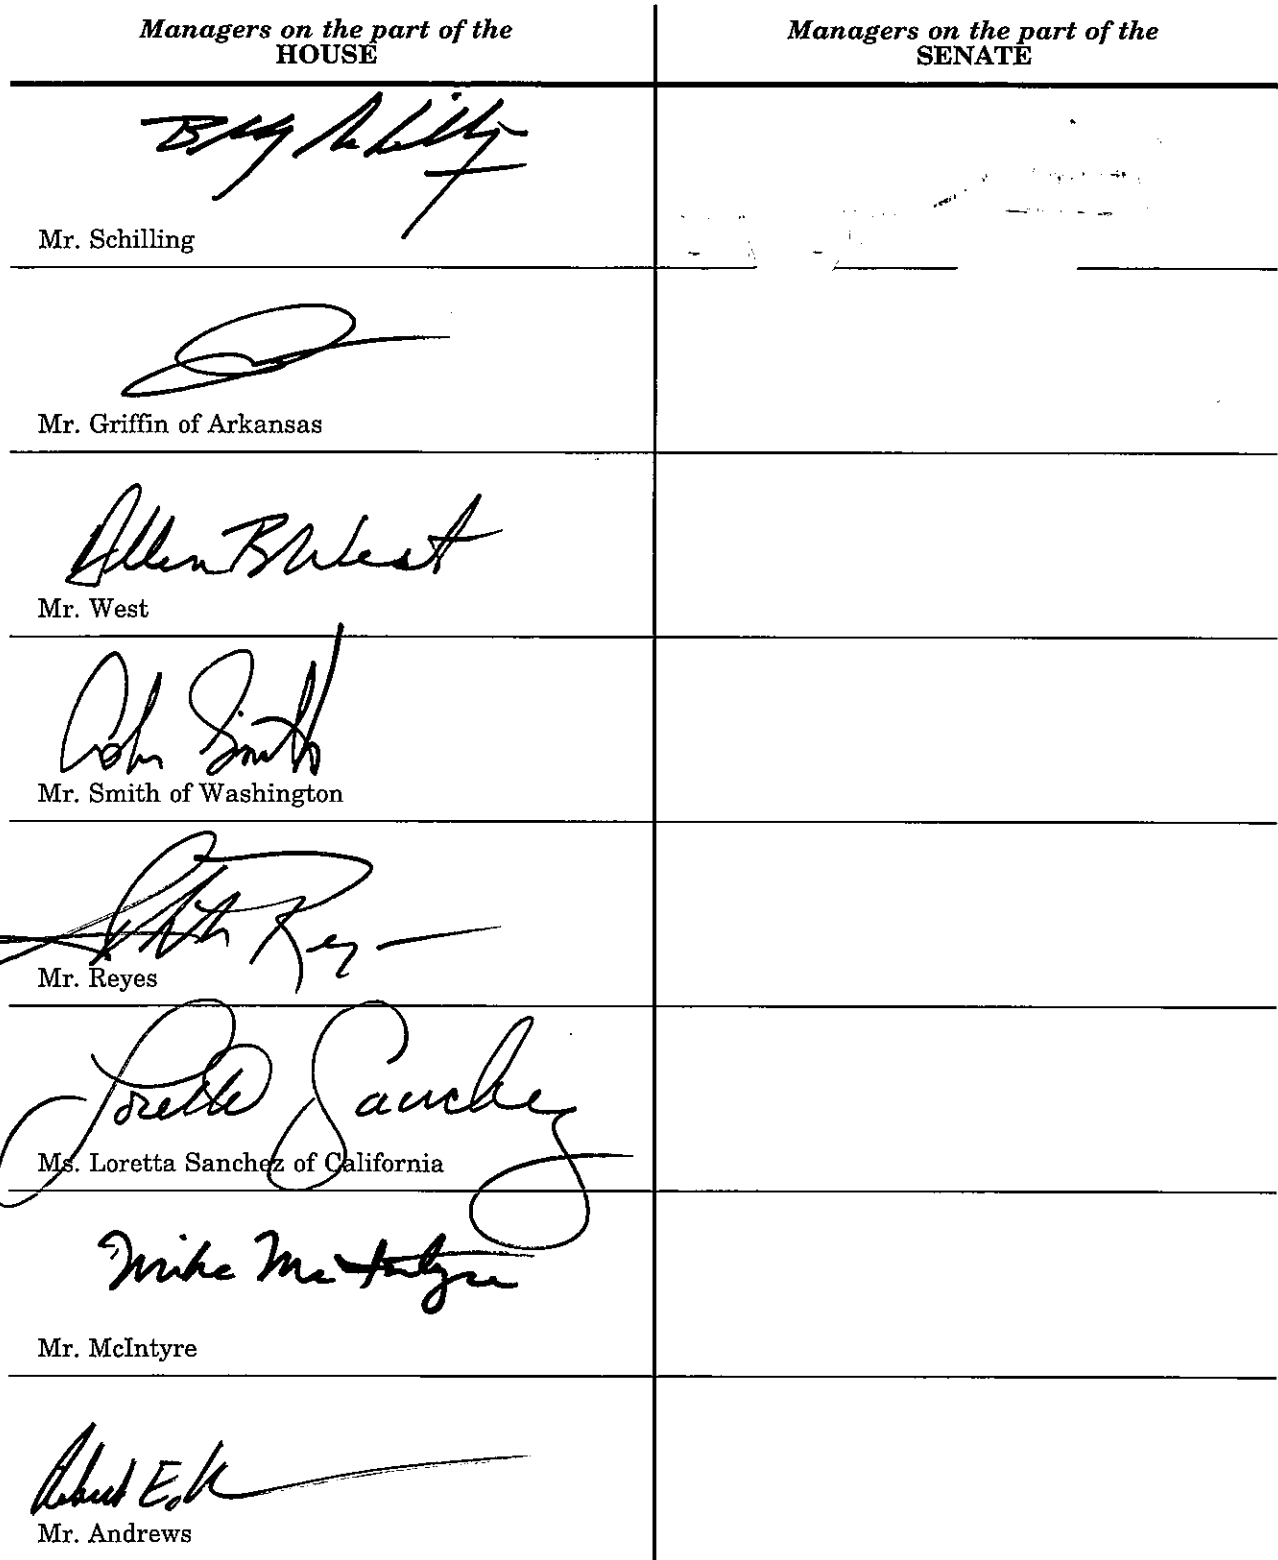 Managers on the part of the
HOUSE
Managers on the part of the
SENATE
Mr. Schilling
Mr. Griffin of Arkansas
Allen B West
Mr. West
Smith
Mr. Smith of Washington
Reyes
Mr. Reyes
Loretta Sanchez
Ms. Loretta Sanchez of California
Mike McIntyre
Mr. McIntyre
Robert E.
Mr. Andrews